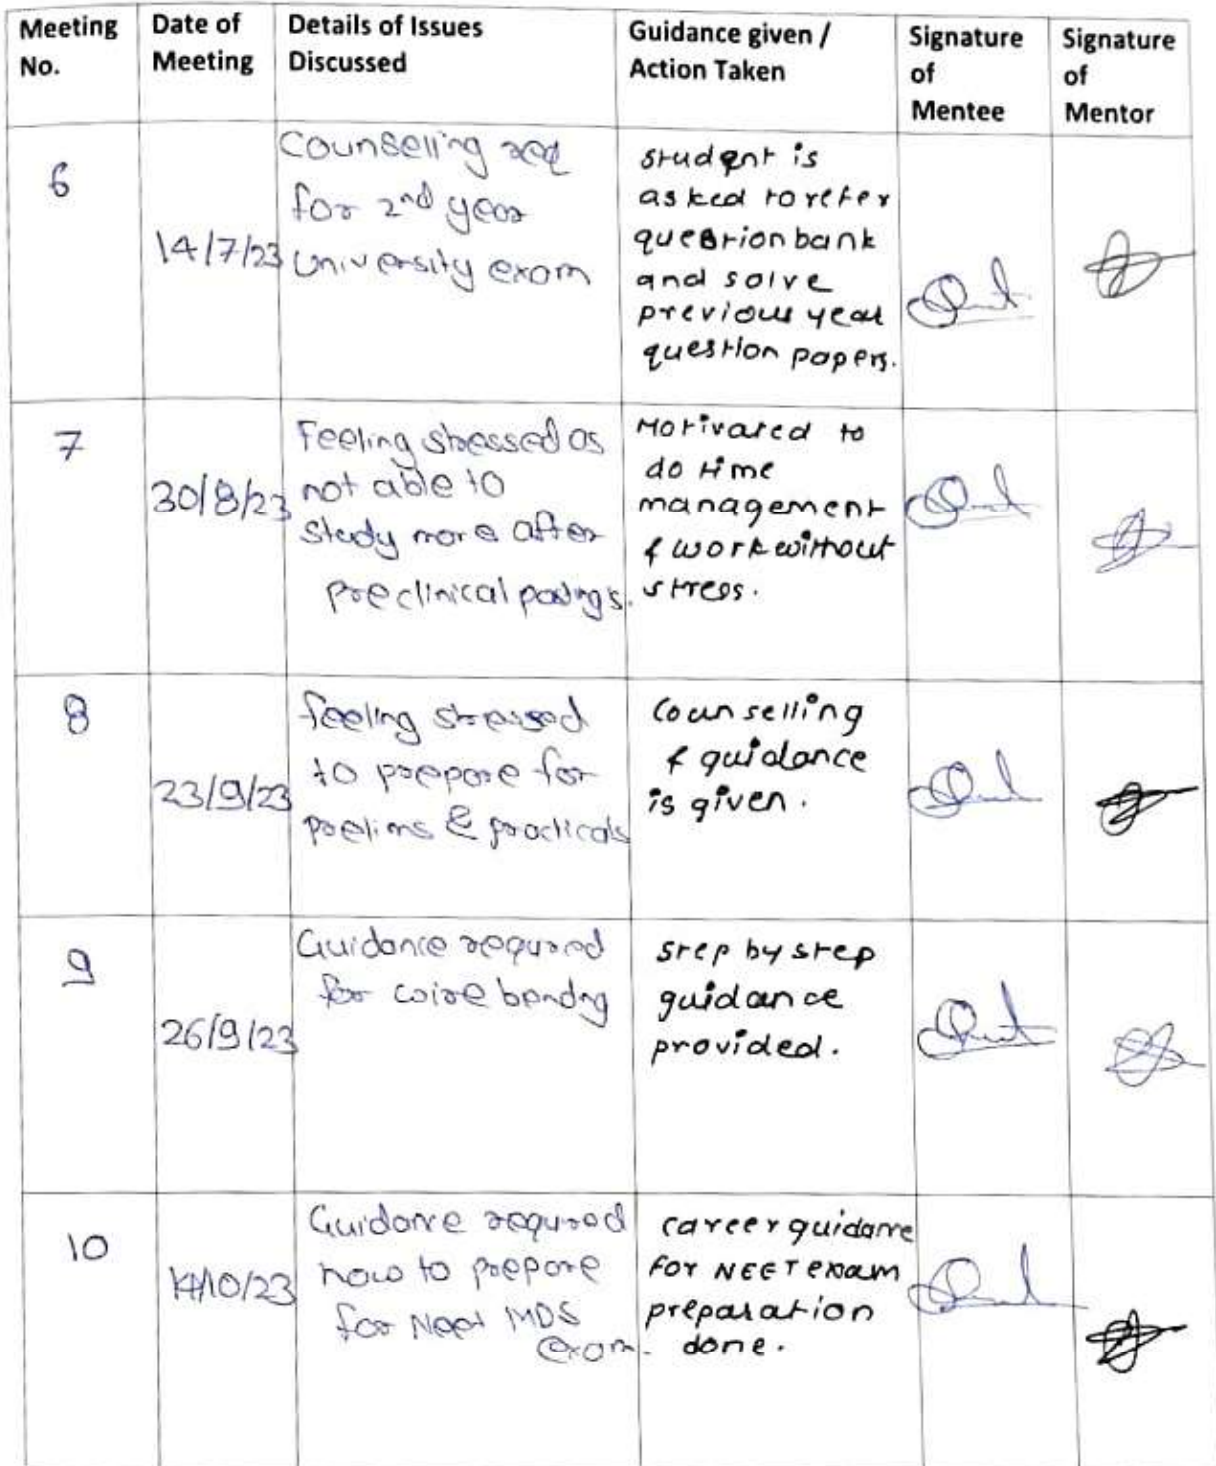 Meeting No.
Date of Meeting
Details of Issues Discussed
Guidance given / Action Taken
Signature of Mentee
Signature of Mentor
6
14/7/23
Counselling req
for 2nd year
university exam
student is
asked to refer
question bank
and solve
previous year
question papers.
7
30/8/23
Feeling stressed as
not able to
study more after
preclinical postings.
Motivated to
do time
management
& work without
stress.
8
23/9/23
feeling stressed
to prepare for
prelims & practicals
Counselling
& guidance
is given.
9
26/9/23
Guidance required
for wire bending
step by step
guidance
provided.
10
14/10/23
Guidance required
how to prepare
for Neet MDS
exam.
career guidance
for NEET exam
preparation
done.